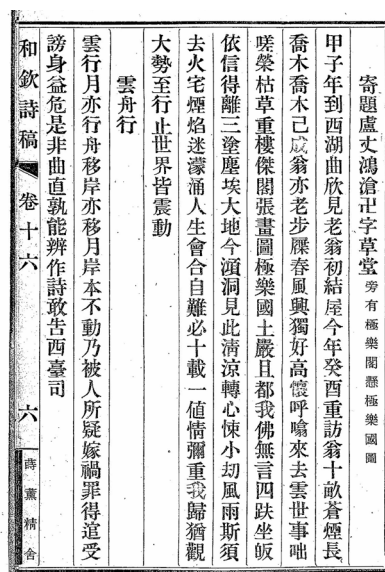 寄題盧丈鴻滄卍字草堂旁有極樂閣懸極樂國圖
甲子年到西湖曲欣見老翁初結屋今年癸酉重訪翁十畝蒼煙長
喬木喬木已成翁亦老步屧春風興獨好高懷呼噏來去雲世事咄
嗟榮枯草重樓傑閣張畫圖極樂國土嚴且都我佛無言四趺坐皈
依信得離三塗塵埃大地今澒洞見此清涼轉心悚小劫風雨斯須
去火宅煙焰迷濛涌人生會合自難必十載一値情彌重我歸猶觀
大勢至行止世界皆震動
雲舟行
雲行月亦行舟移岸亦移月岸本不動乃被人所疑嫁禍罪得逭受
謗身益危是非曲直孰能辨作詩敢告西臺司
和欽詩稿
卷十六
六
蒔薰精舍